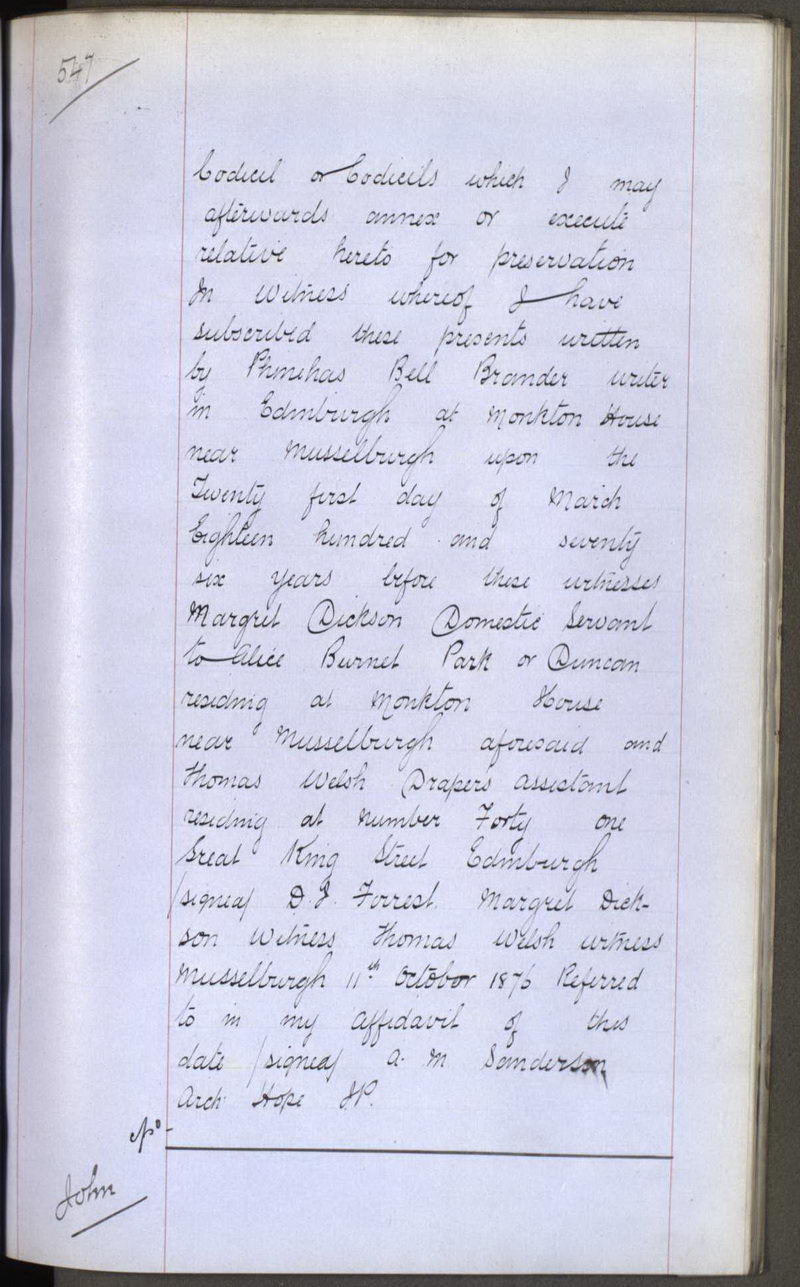 547
Codicil or Codicils which I may
afterwards annex or execute
relative hereto for preservation
In Witness whereof I have
subscribed these presents written
by Phinehas Bell Brander writer
in Edinburgh at Monkton House
near Musselburgh upon the
Twenty first day of March
Eighteen hundred and seventy
six years before these witnesses
Margret Dickson Domestic Servant
to Alice Burnet Park or Duncan
residing at Monkton House
near Musselburgh aforesaid and
Thomas Welsh Drapers assistant
residing at number Forty one
Great King Street Edinburgh
/signed/ D. J. Forrest. Margret Dick-
son Witness Thomas Welsh witness
Musselburgh 11th October 1876 Referred
to in my affidavit of this
date /signed/ A. M Sanderson
Arch. Hope J.P.
John